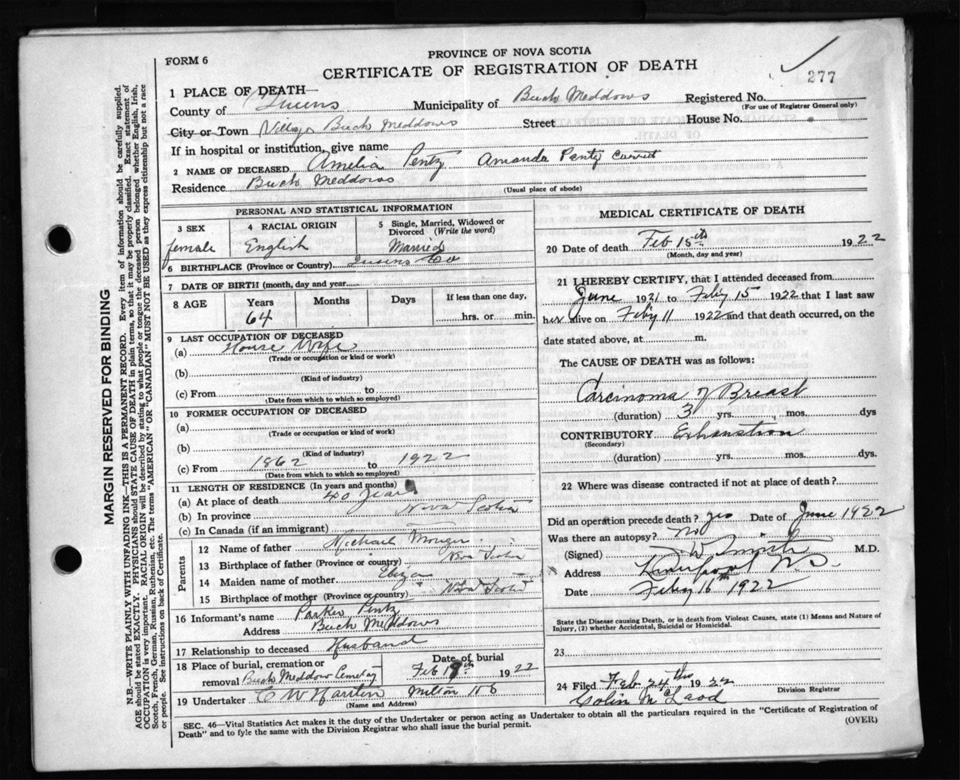 PROVINCE OF NOVA SCOTIA
FORM 6
CERTIFICATE OF REGISTRATION OF DEATH
277
1 PLACE OF DEATH—
County of Queens Municipality of Buck Meddows Registered No.
(For use of Registrar General only)
City or Town Village Buck Meddows Street House No.
If in hospital or institution, give name
2 NAME OF DECEASED Amelia Pentz Amanda Pentz
Residence Buck Meddows
(Usual place of abode)
PERSONAL AND STATISTICAL INFORMATION
3 SEX 4 RACIAL ORIGIN 5 Single, Married, Widowed or Divorced (Write the word)
female English Married
6 BIRTHPLACE (Province or Country) Queens Co
7 DATE OF BIRTH (month, day and year)
8 AGE Years Months Days If less than one day,
64 hrs. or min.
9 LAST OCCUPATION OF DECEASED
(a) House Wife
(Trade or occupation or kind or work)
(b)
(Kind of industry)
(c) From to
(Date from which to which so employed)
10 FORMER OCCUPATION OF DECEASED
(a)
(Trade or occupation or kind of work)
(b)
(Kind of industry)
(c) From 1862 to 1922
(Date from which to which so employed)
11 LENGTH OF RESIDENCE (In years and months)
(a) At place of death 40 years
(b) In province Nova Scotia
(c) In Canada (if an immigrant)
Parents
12 Name of father Michael
13 Birthplace of father (Province or country) Nova Scotia
14 Maiden name of mother
15 Birthplace of mother (Province or country) Nova Scotia
16 Informant's name Parker Pentz
Address Buck Meddows
17 Relationship to deceased Husband
18 Place of burial, cremation or removal Buck Meddow Cemetay Date of burial Feb 1922
19 Undertaker C W Milton N S
(Name and Address)
MEDICAL CERTIFICATE OF DEATH
20 Date of death Feb 15th 1922
(Month, day and year)
21 I HEREBY CERTIFY, that I attended deceased from
June 1921 to Feby 15 1922 that I last saw
her alive on Feby 11 1922 and that death occurred, on the
date stated above, at m.
The CAUSE OF DEATH was as follows:
Carcinoma of Breast
(duration) 3 yrs. mos. dys
CONTRIBUTORY Exhaustion
(Secondary)
(duration) yrs. mos. dys.
22 Where was disease contracted if not at place of death?
Did an operation precede death? yes Date of June 1922
Was there an autopsy? No
(Signed) Smith M.D.
Address Liverpool N.S.
Date Feby 16th 1922
State the Disease causing Death, or in death from Violent Causes, state (1) Means and Nature of Injury, (2) whether Accidental, Suicidal or Homicidal.
23
24 Filed Feb 24th 1922
Colin McLeod Division Registrar
SEC. 46—Vital Statistics Act makes it the duty of the Undertaker or person acting as Undertaker to obtain all the particulars required in the "Certificate of Registration of
Death" and to fyle the same with the Division Registrar who shall issue the burial permit.
(OVER)
MARGIN RESERVED FOR BINDING
N.B.—WRITE PLAINLY WITH UNFADING INK—THIS IS A PERMANENT RECORD. Every item of information should be carefully supplied.
AGE should be stated EXACTLY. PHYSICIANS should STATE CAUSE OF DEATH in plain terms, so that it may be properly classified. Exact statement of
OCCUPATION is very important. RACIAL ORIGIN will be described by stating to what people or tongue the deceased person belonged whether English, Irish,
Scotch, French, German, Russian, Ruthenian, etc. The terms "AMERICAN" or "CANADIAN" MUST NOT BE USED as they express citizenship but not a race
or people. See instructions on back of Certificate.